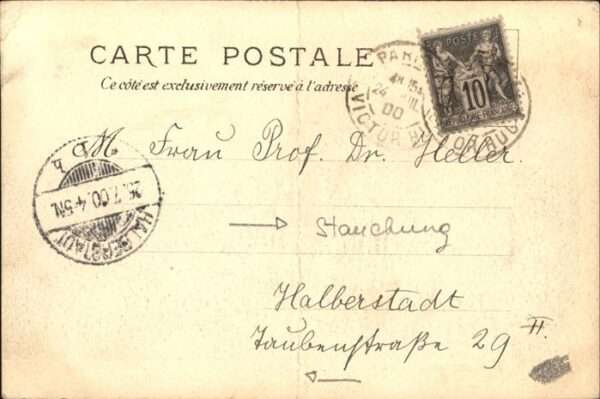 CARTE POSTALE
Ce côté est exclusivement réservé à l'adresse
POSTE
10
PARIS
24
00
VICTOR HUGO
M. Frau Prof. Dr. Heller.
HALBERSTADT
25.7.00.4-5N.
Stauchung
Halberstadt
Taubenstraße 29 II.